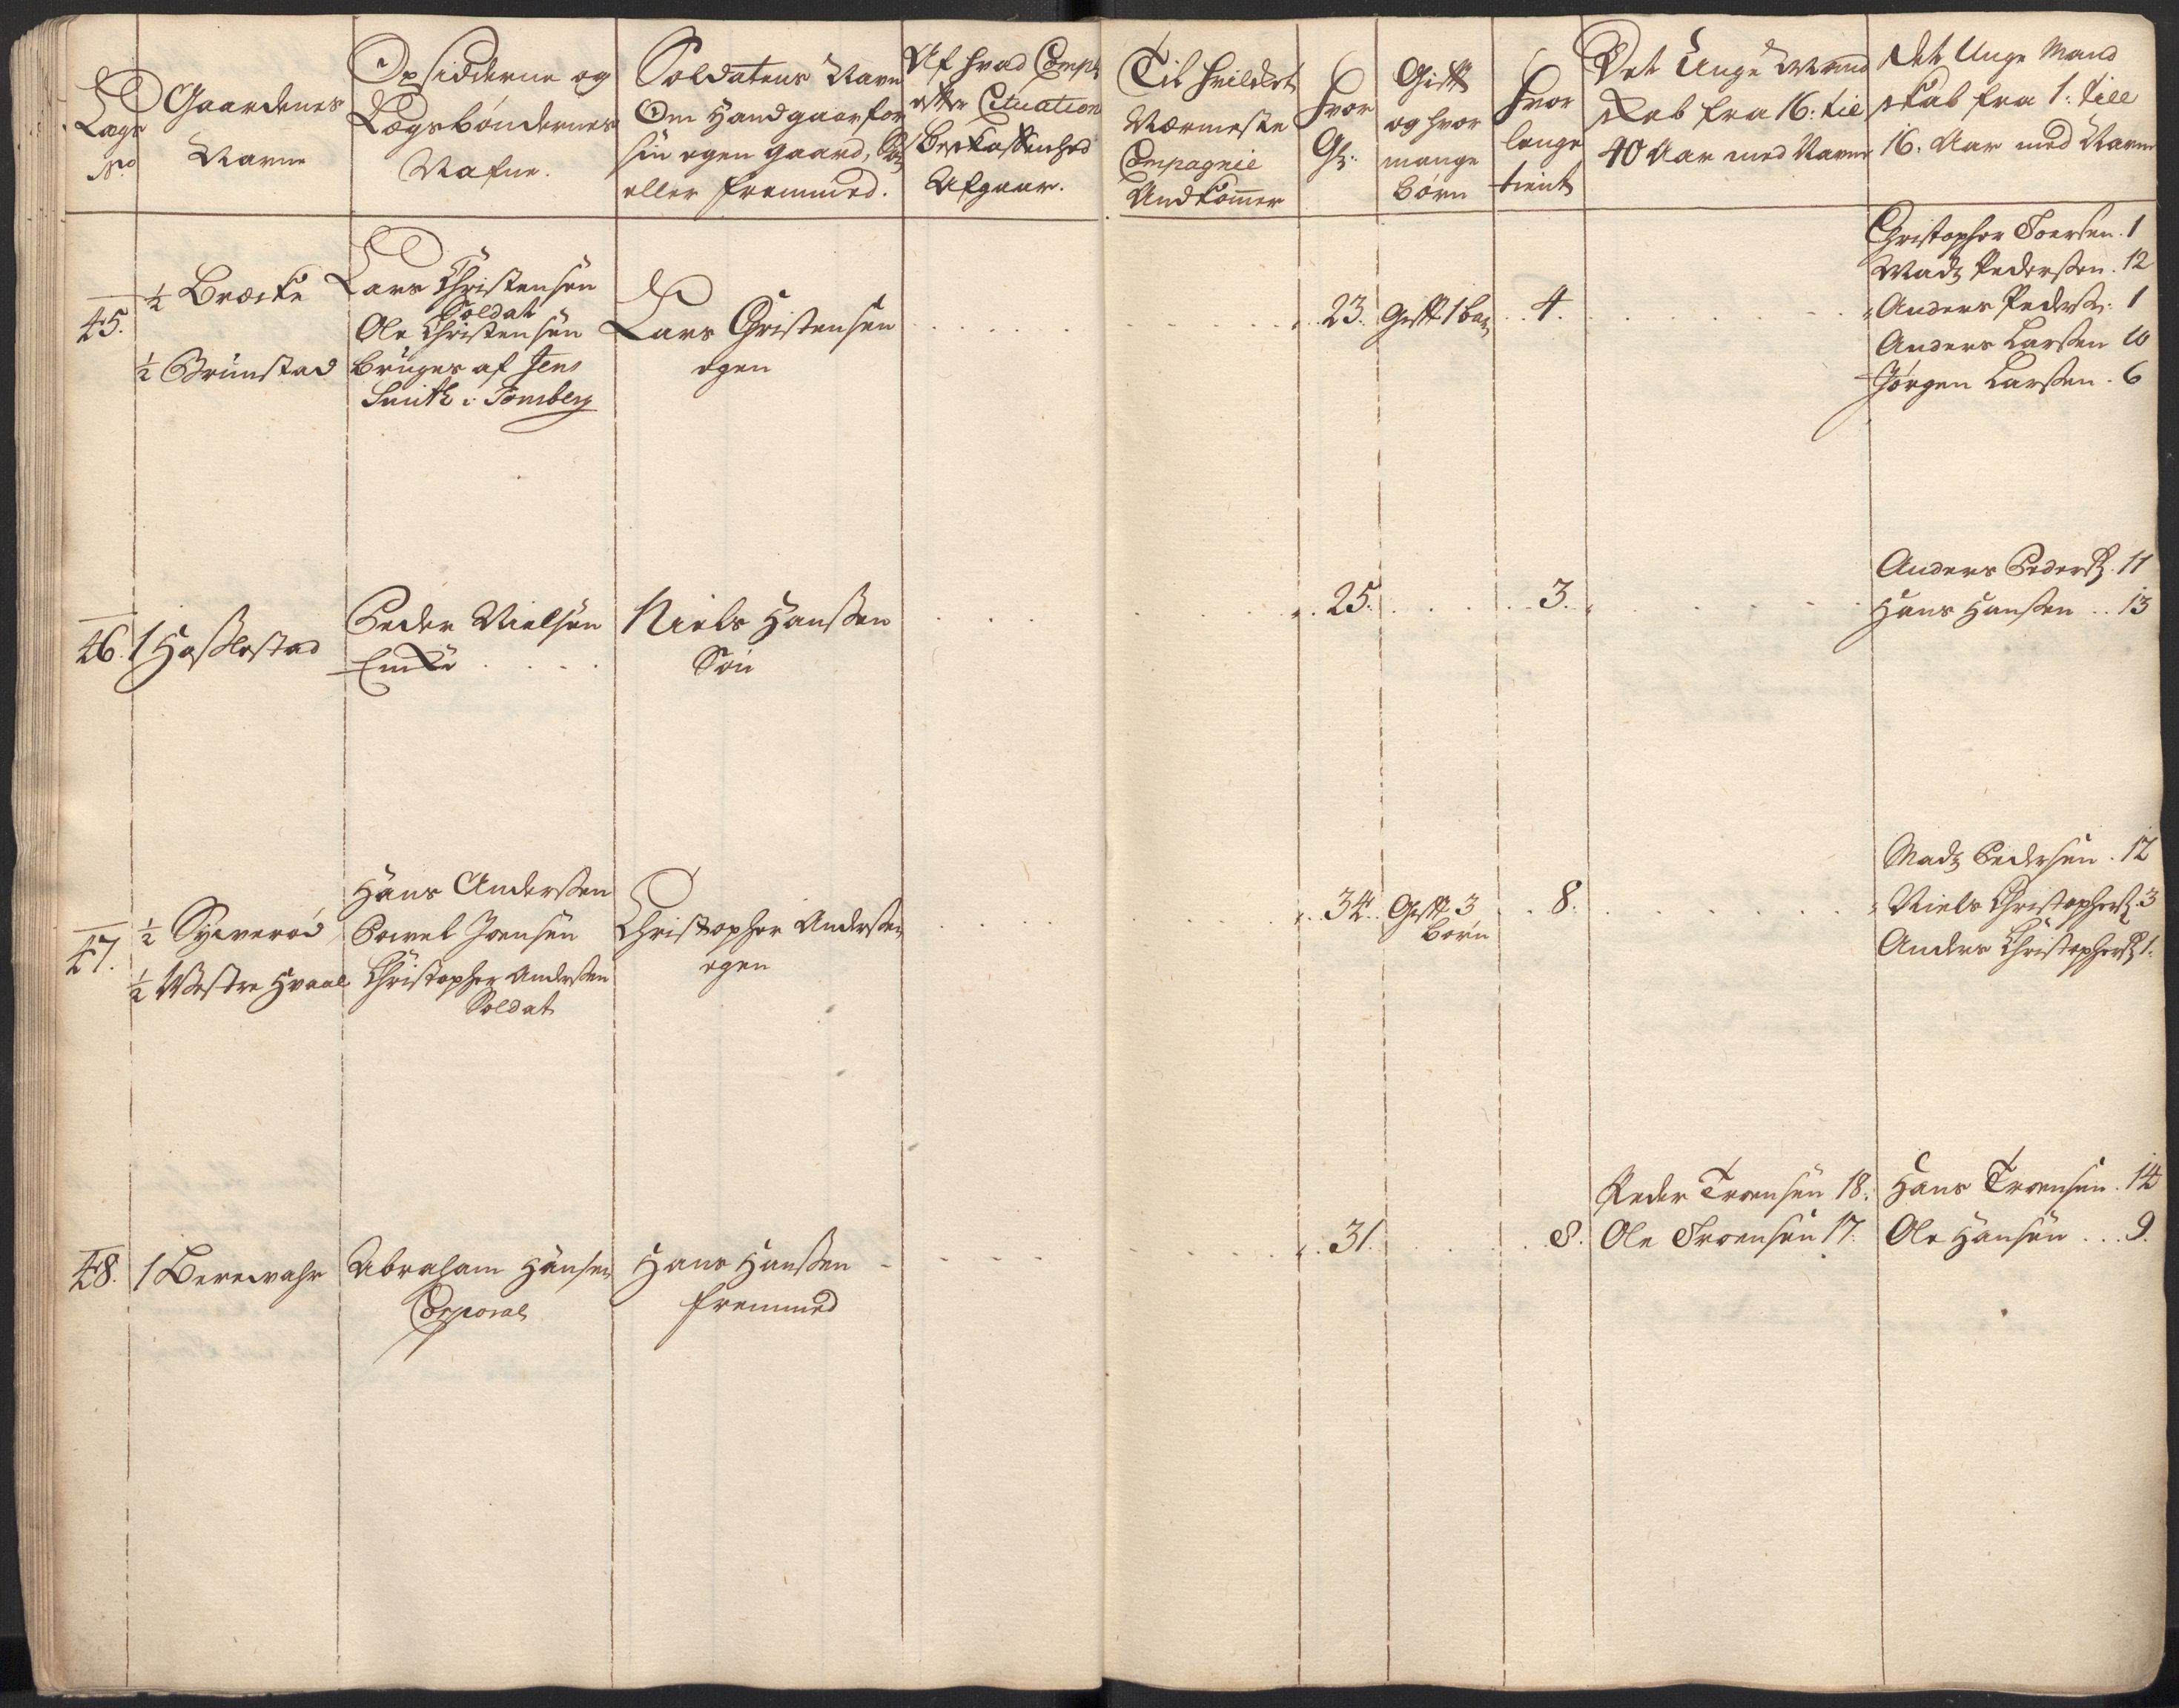 Lægs
No
Gaardenes
Navne
Opsidderne og
Lægsböndernes
Nafne.
Soldatens Navn
Om Hand gaar for
sin egen gaard, Søn
eller fremmed.
Af hvad Comp:
efter Cituation
Beskaffenhed
Afgaar.
Til hvilcket
Nærmeste
Compagnie
And kommer
hvor
Gl:
Gift
og hvor
mange
börn
hvor
lenge
tient
Det Unge Mand
skab fra 16: til
40 Aar med Navne
det Unge Mand
skab fra 1: till
16. Aar med Navne
45.
½ Bræcke
½ Brunstad
Lars Christensen
Soldat
Ole Christensen
bruges af Jens
Smith i Tonsberg
Lars Christensen
egen
23.
Gift 1 barn
4.
Christopher Joersen. 1
Madz Pedersen. 12
Anders Peders: 1
Anders Larsen 10
Jörgen Larsen. 6
46.
1 Hasslestad
Peder Nielsen
Encke
Niels Hansen
Sön
25.
3.
Anders Peders. 11
Hans Hansen .. 13
47.
½ Syverød
½ Westre Hvaal
Hans Andersen
Powel Joensen
Christopher Andersen
Soldat
Christopher Andersen
egen
34.
Gift 3
börn
8.
Madz Pedersen. 12
Niels Christophers. 3
Anders Christophers 1.
48.
1 Berrewahr
Abraham Hansen
Corporal
Hans Hansen
fremmed
31.
8.
Peder Troensen 18.
Ole Troensen 17.
Hans Troensen. 14
Ole Hansen ... 9.